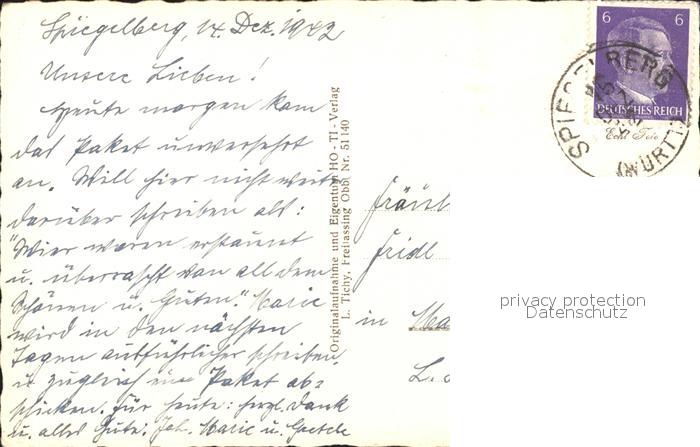 Spiegelberg, 14. Dez. 1942
Unsere Lieben!
Heute morgen kam
das Paket unversehrt
an. Will hier nicht weiter
darüber schreiben als:
"Wir waren erstaunt
u. überrascht von all dem
Schönen u. Guten." Marie
wird in den nächsten
Tagen ausführlicher schreiben
u. zugleich ein Paket ab=
schicken. Für heute: herzl. Dank
u. alles Gute. Joh. Marie u. Gretele
Originalaufnahme und Eigentum HO-TI-Verlag
L. Tichy, Freilassing Obb. Nr. 51140
6 6
DEUTSCHES REICH
SPIEGELBERG
(WÜRTT)
Echt Foto
Fräul
Fridl
in Ma
privacy protection
Datenschutz